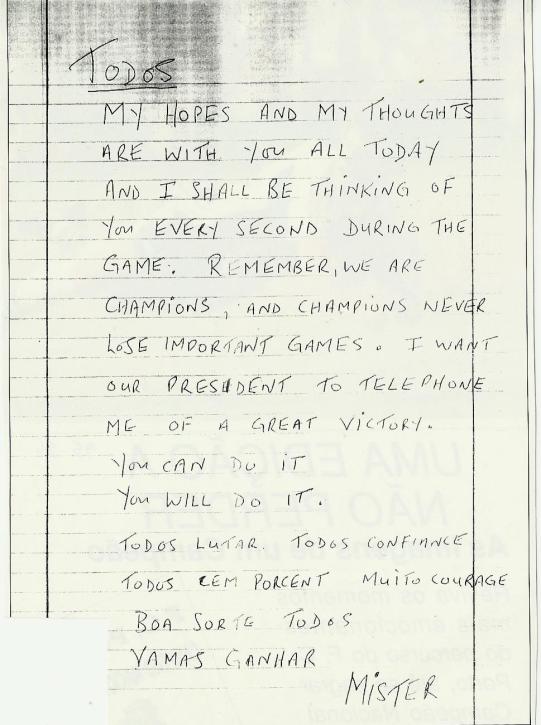 TODOS
MY HOPES AND MY THOUGHTS
ARE WITH YOU ALL TODAY
AND I SHALL BE THINKING OF
YOU EVERY SECOND DURING THE
GAME. REMEMBER, WE ARE
CHAMPIONS, AND CHAMPIONS NEVER
LOSE IMPORTANT GAMES. I WANT
OUR PRESIDENT TO TELEPHONE
ME OF A GREAT VICTORY.
YOU CAN DO IT
YOU WILL DO IT.
TODOS LUTAR TODOS CONFIANCE
TODOS CEM PORCENT MUITO COURAGE
BOA SORTE TODOS
VAMAS GANHAR
MISTER
UMA EDIÇÃO A
NÃO PERDER
As imagens de um campeão
Reviva os momentos
mais emocionantes
do percurso do F. C.
Porto,
Campeão Nacional